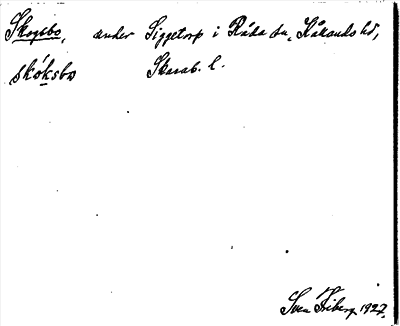 Skogsbo, under Siggetorp i Råda sn, Kållands hd,
skóksbo Skarab. l.
Sven Friberg 1927.